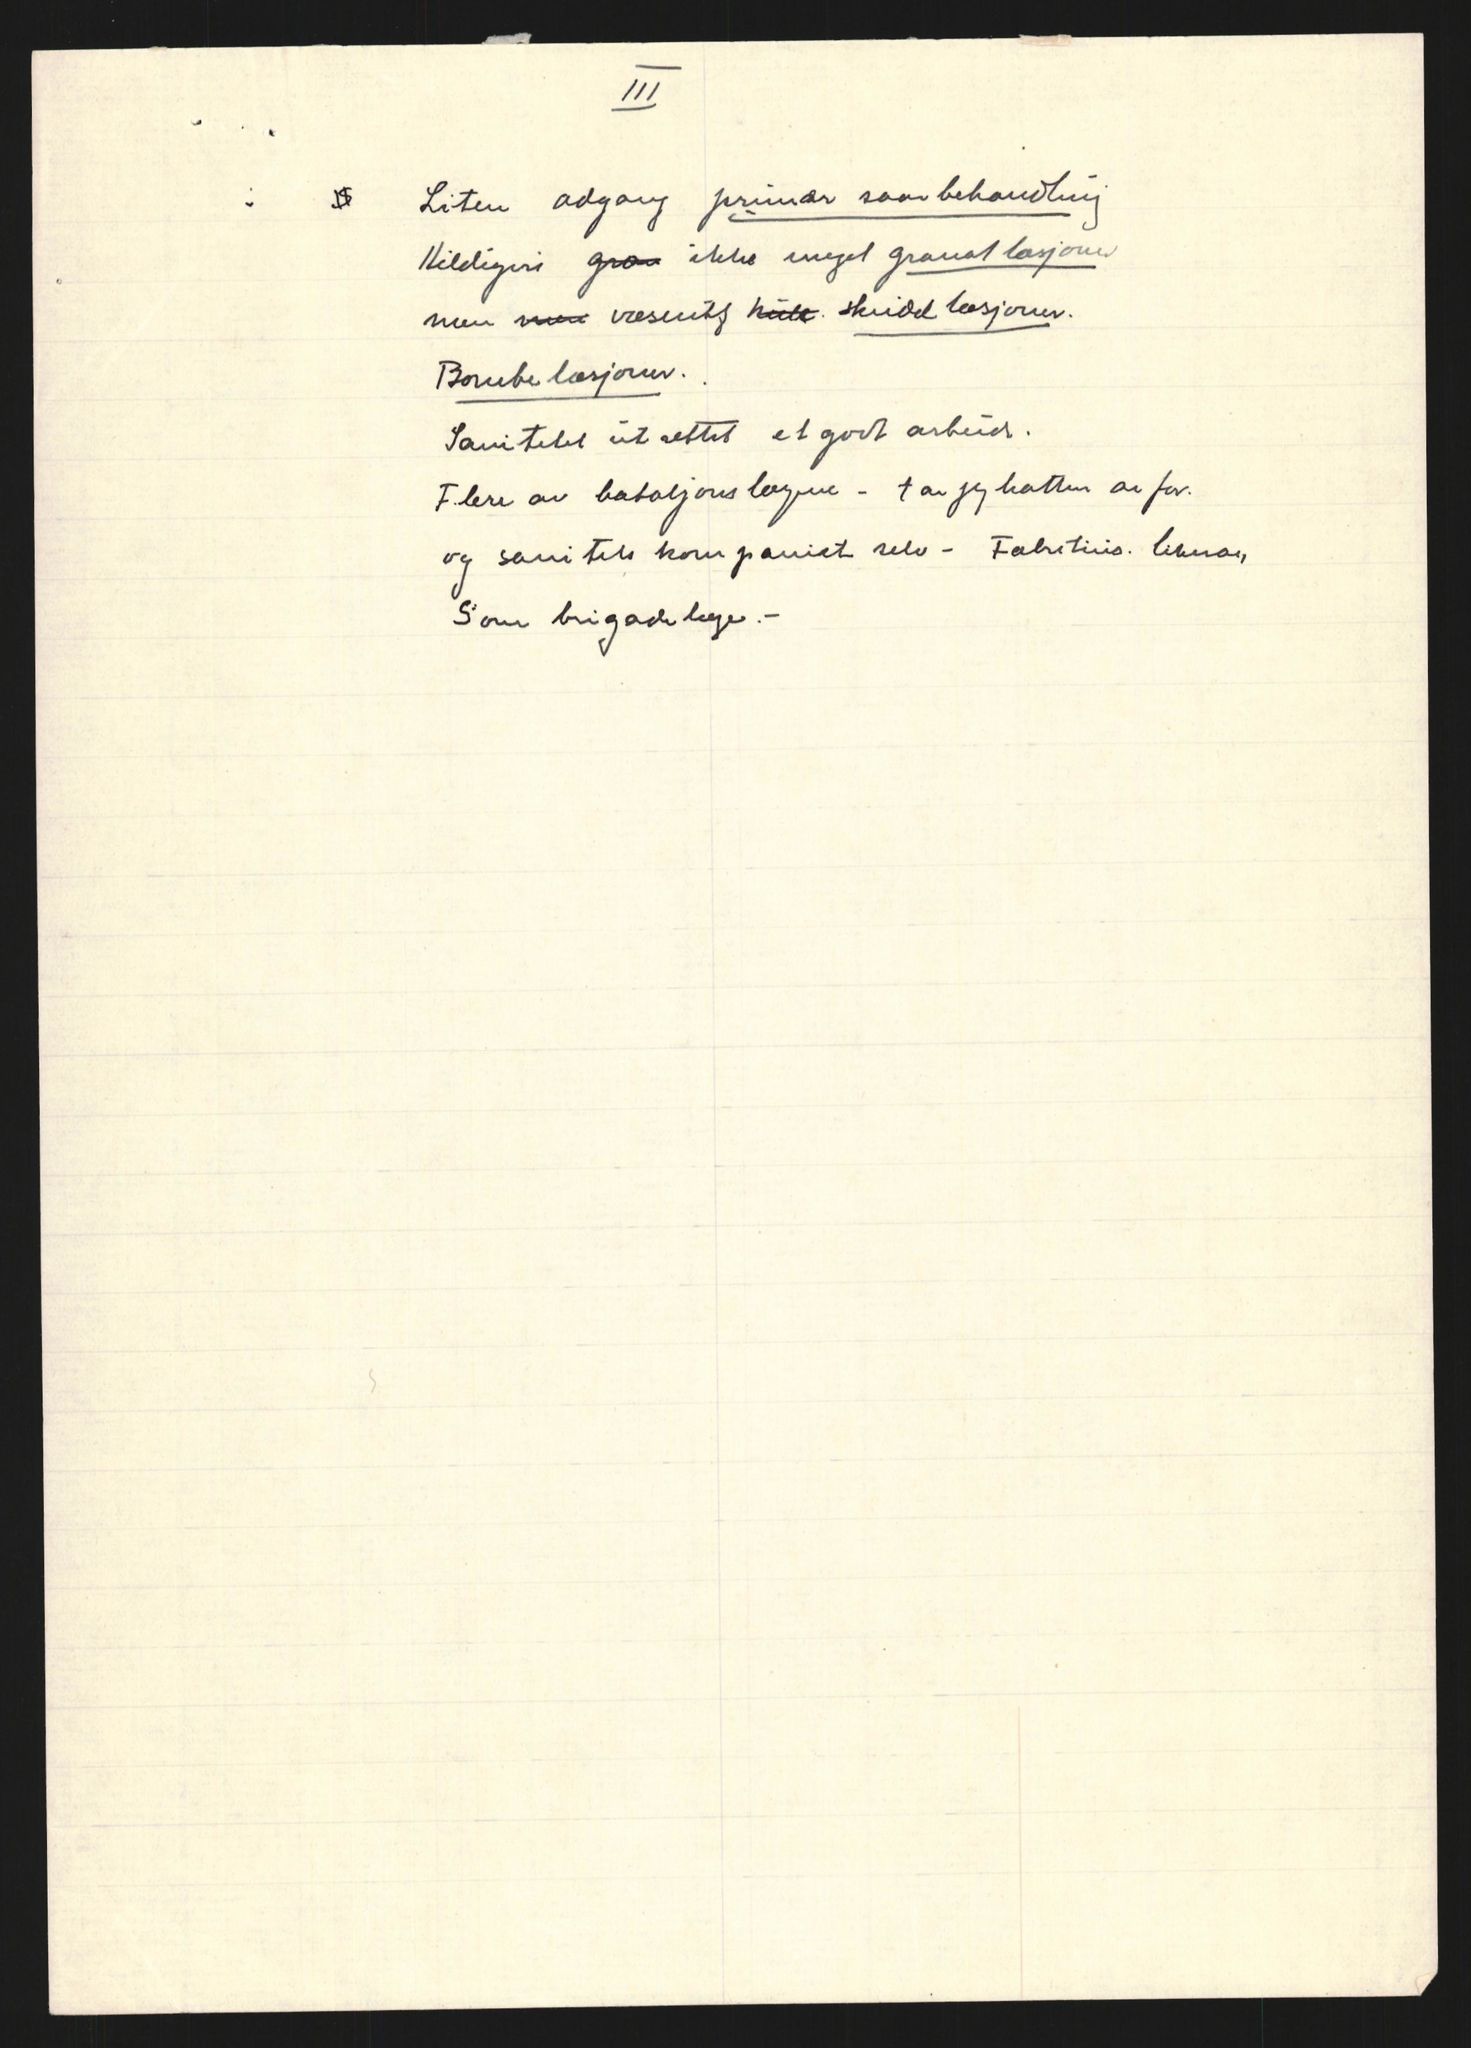 III
Liten adgang primær saarbehandling
Heldigvis gran ikke meget granatlæsjoner
men men væsentlig skuddlæsjoner.
Bombelæsjoner.
Sanitetet utrettet et godt arbeide.
Flere av bataljonslægene - tar jeg hatten av for.
og sanitetskompaniet selv - Fabritius.
Som brigadelege. -